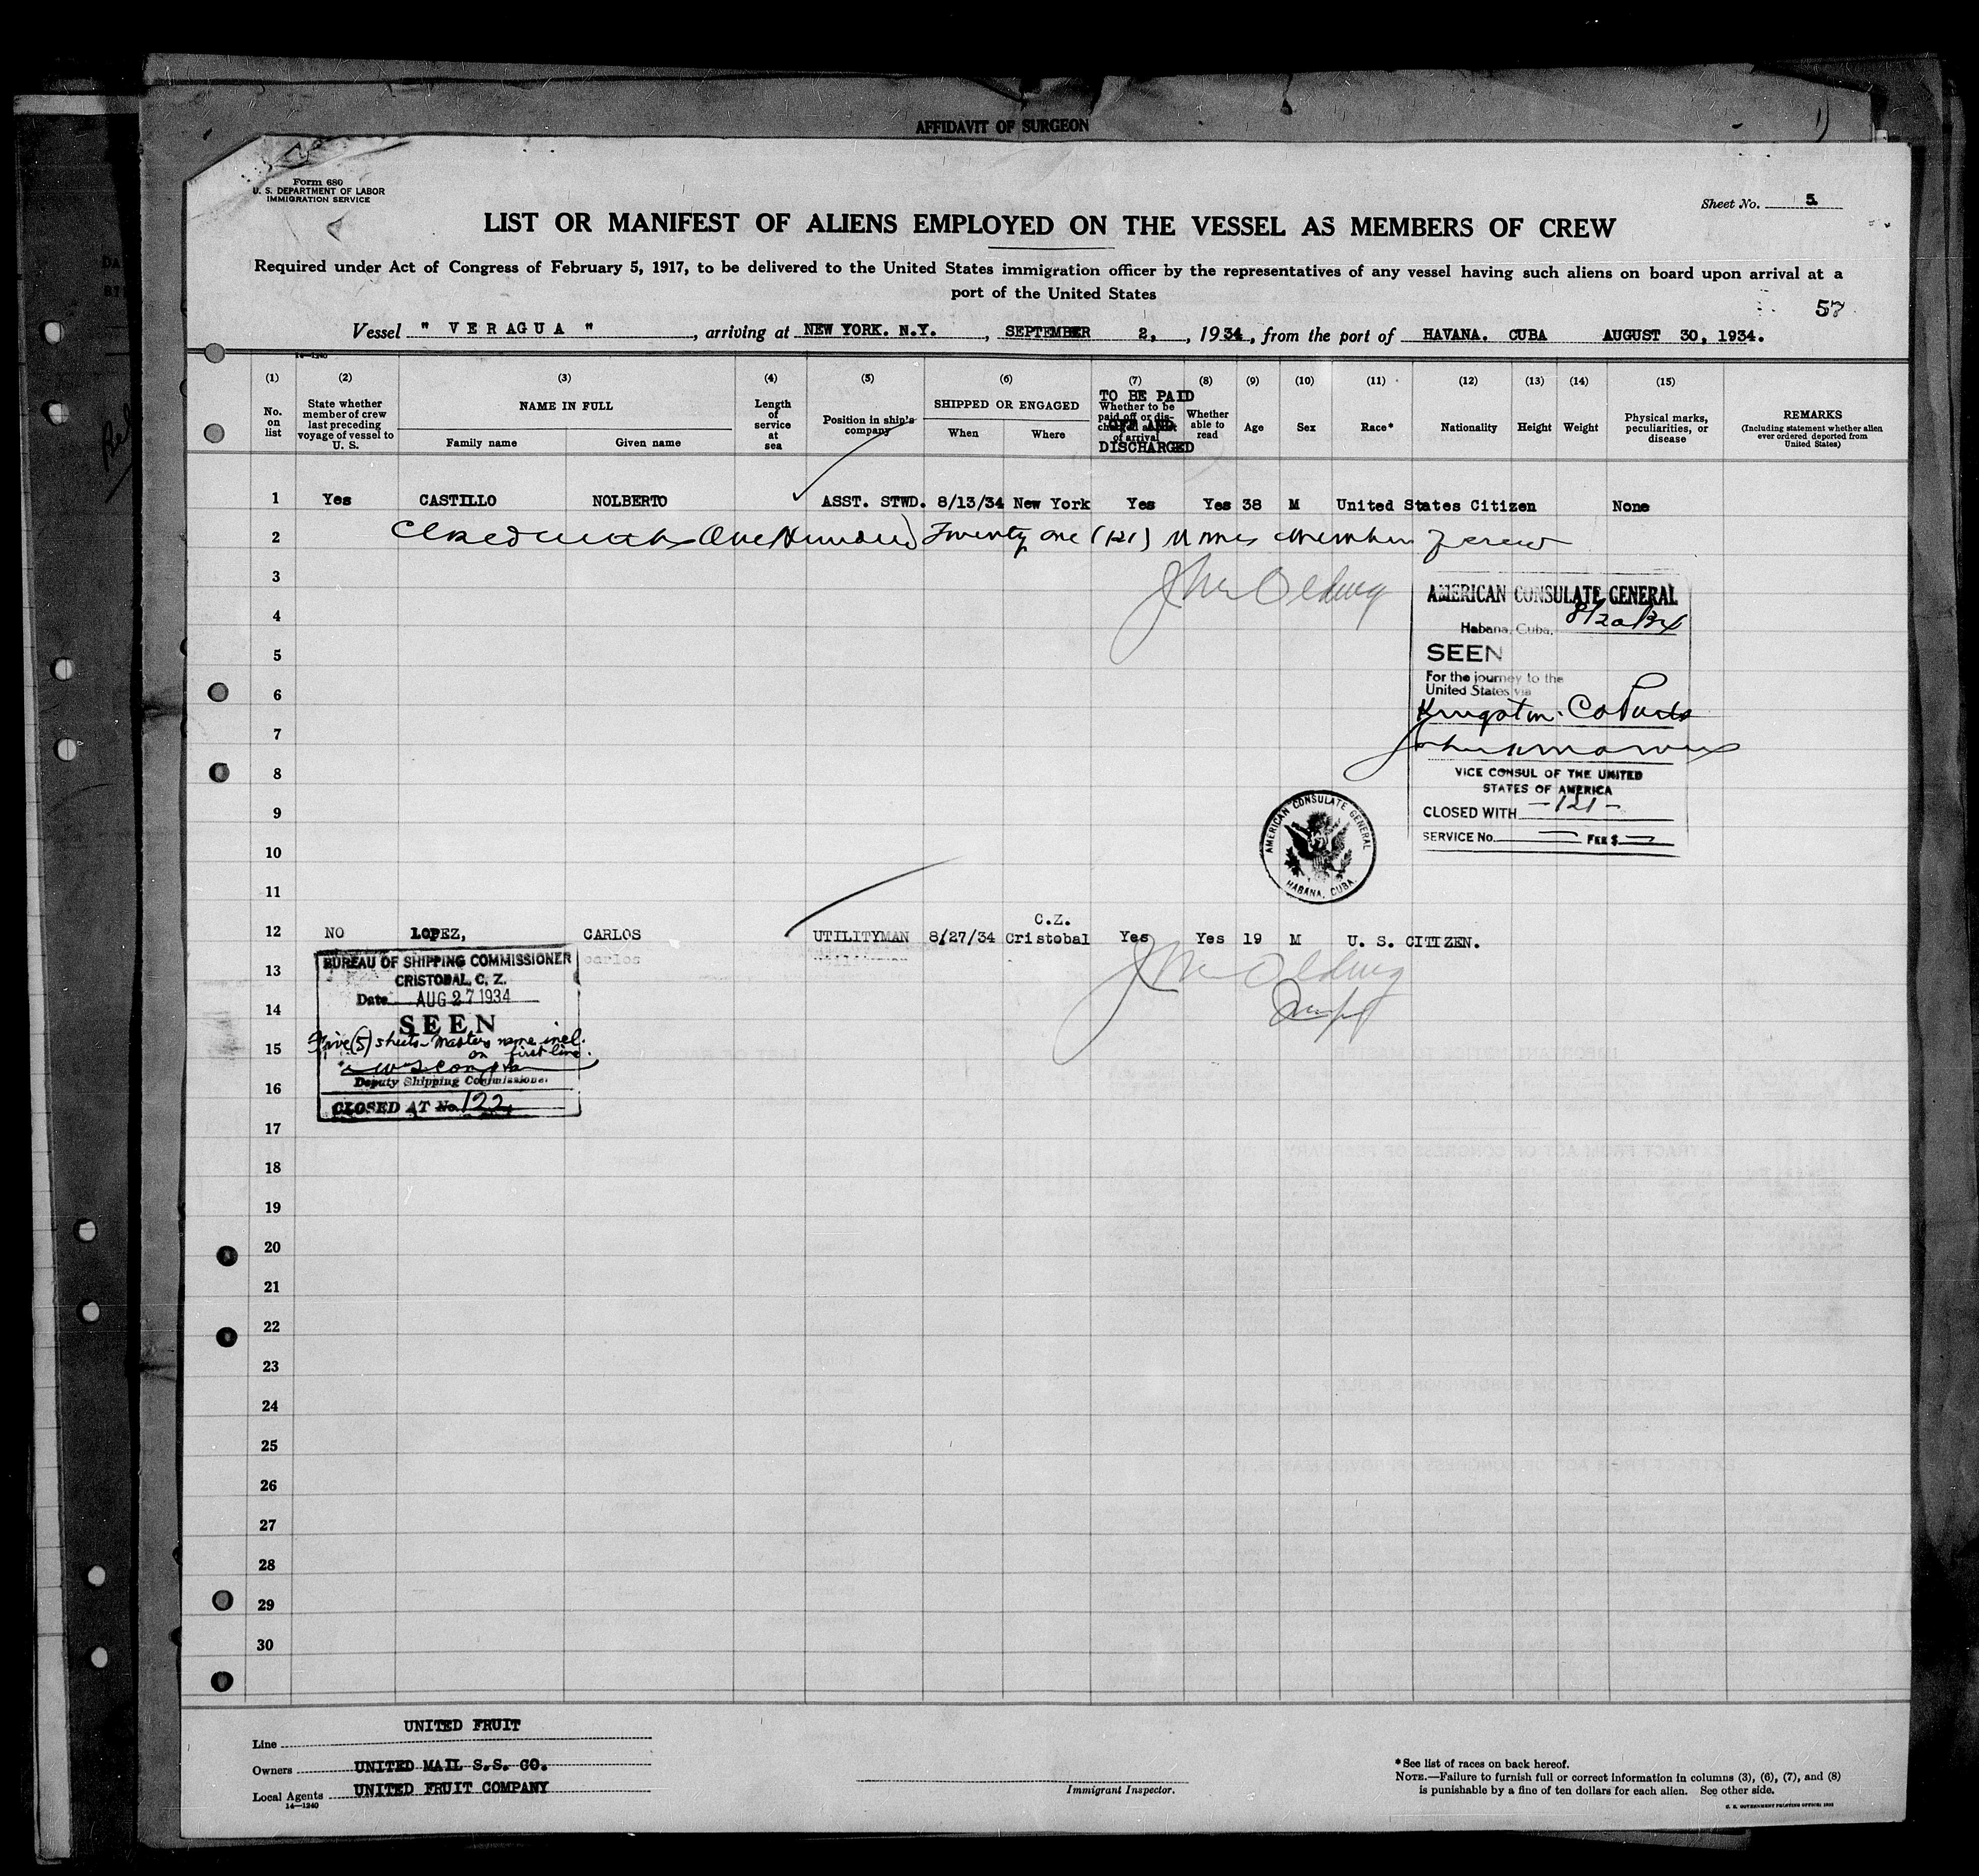 AFFIDAVIT OF SURGEON
Form 680
U. S. DEPARTMENT OF LABOR
IMMIGRATION SERVICE
Sheet No. 5
LIST OR MANIFEST OF ALIENS EMPLOYED ON THE VESSEL AS MEMBERS OF CREW
Required under Act of Congress of February 5, 1917, to be delivered to the United States immigration officer by the representatives of any vessel having such aliens on board upon arrival at a
port of the United States
57
Vessel " VERAGUA ", arriving at NEW YORK. N.Y., SEPTEMBER 2, , 1934, from the port of HAVANA. CUBA AUGUST 30, 1934.
14—1240
(1) No. on list
(2) State whether member of crew last preceding voyage of vessel to U. S.
(3) NAME IN FULL
Family name Given name
(4) Length of service at sea
(5) Position in ship's company
(6) SHIPPED OR ENGAGED
When Where
(7) Whether to be paid off or discharged at port of arrival
TO BE PAID OFF AND DISCHARGED
(8) Whether able to read
(9) Age
(10) Sex
(11) Race*
(12) Nationality
(13) Height
(14) Weight
(15) Physical marks, peculiarities, or disease
REMARKS
(Including statement whether alien ever ordered deported from United States)
1 Yes CASTILLO NOLBERTO ASST. STWD. 8/13/34 New York Yes Yes 38 M United States Citizen None
2 Closed with One Hundred Twenty one (121) names members of crew
3
4
5
6
7
8
9
10
11
AMERICAN CONSULATE GENERAL
Habana, Cuba,
SEEN
For the journey to the
United States via
Kingston.
VICE CONSUL OF THE UNITED
STATES OF AMERICA
CLOSED WITH -121-
SERVICE No. FEE $
AMERICAN CONSULATE GENERAL
HABANA, CUBA.
C.Z.
12 NO LOPEZ, CARLOS UTILITYMAN 8/27/34 Cristobal Yes Yes 19 M U. S. CITIZEN.
carlos
13
14
15
16
BUREAU OF SHIPPING COMMISSIONER
CRISTOBAL, C. Z.
Date AUG 27 1934
SEEN
Five (5) sheets - Masters name incl.
on first line.
Deputy Shipping Commissioner
CLOSED AT No. 122
17
18
19
20
21
22
23
24
25
26
27
28
29
30
Line UNITED FRUIT
Owners UNITED MAIL S.S. CO.
Local Agents UNITED FRUIT COMPANY
14—1240
Immigrant Inspector.
*See list of races on back hereof.
NOTE.—Failure to furnish full or correct information in columns (3), (6), (7), and (8)
is punishable by a fine of ten dollars for each alien. See other side.